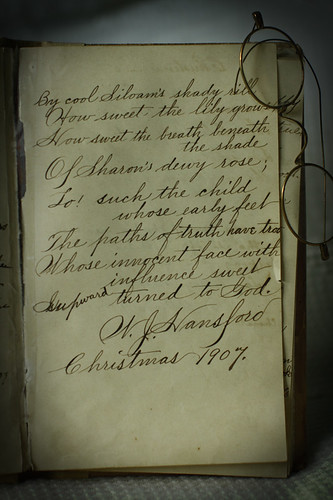 By cool Siloam's shady rill
How sweet the lily grows
How sweet the breath, beneath
the shade
Of Sharon's dewy rose;
Lo! such the child
whose early feet
The paths of truth have trod
Whose innocent face with
influence sweet
Is upward turned to God.
W. J. Hansford
Christmas 1907.